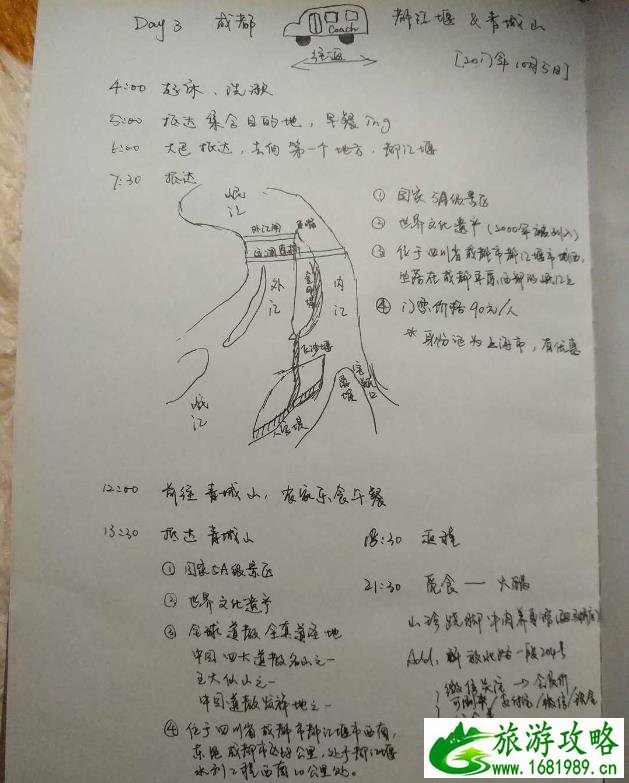 Day 3 成都 Coach 都江堰 & 青城山
往返
[2017年10月5日]
4:00 起床、洗漱
5:00 抵达集合目的地，早餐ing
6:00 大巴抵达，去佪第一个地方，都江堰
7:30 抵达
岷江
外江闸
鱼嘴
外江
金刚堤
内江
飞沙堰
宝瓶口
离堆
人字堤
岷江
① 国家5A级景区
② 世界文化遗产(2000年被列入)
③ 位于四川省成都市都江堰市城西,
坐落在成都平原西部的岷江上
④ 门票价格90元/人
* 身份证为上海市，有优惠
12:00 前往青城山，农家乐食午餐
13:30 抵达青城山
① 国家5A级景区
② 世界文化遗产
③ 全球道教全真道圣地
中国四大道教名山之一
五大仙山之一
中国道教发祥地之一
④ 位于四川省成都市都江堰市西南,
东距成都市区68公里,处于都江堰
水利工程西南10公里处。
18:30 返程
21:30 觅食 — 火锅
山珍跷脚牛肉养身馆
Add. 解放北路一段204号
微信关注 → 会员价
可刷卡/支付宝/微信/现金
旅游攻略
www.1681989.cn